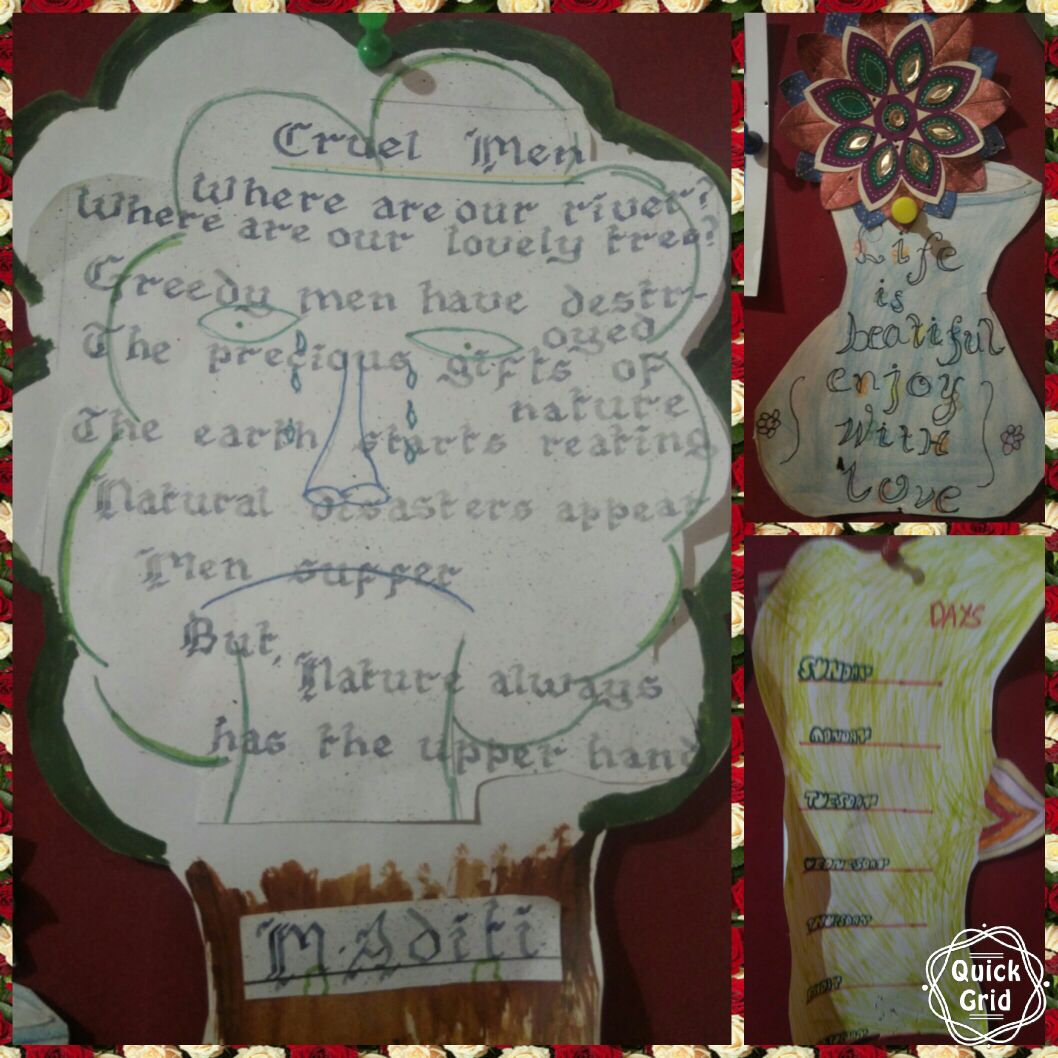 Cruel Men
Where are our river?
Where are our lovely tree?
Greedy men have destr-
oyed
The precious gifts of
nature
The earth starts reating
Natural disasters appear
Men suffer
But,
Nature always
has the upper hand
M. Aditi
Life
is
beatiful
enjoy
With
Love
DAYS
SUNDAY
MONDAY
TUESDAY
WEDNESDAY
Quick
Grid